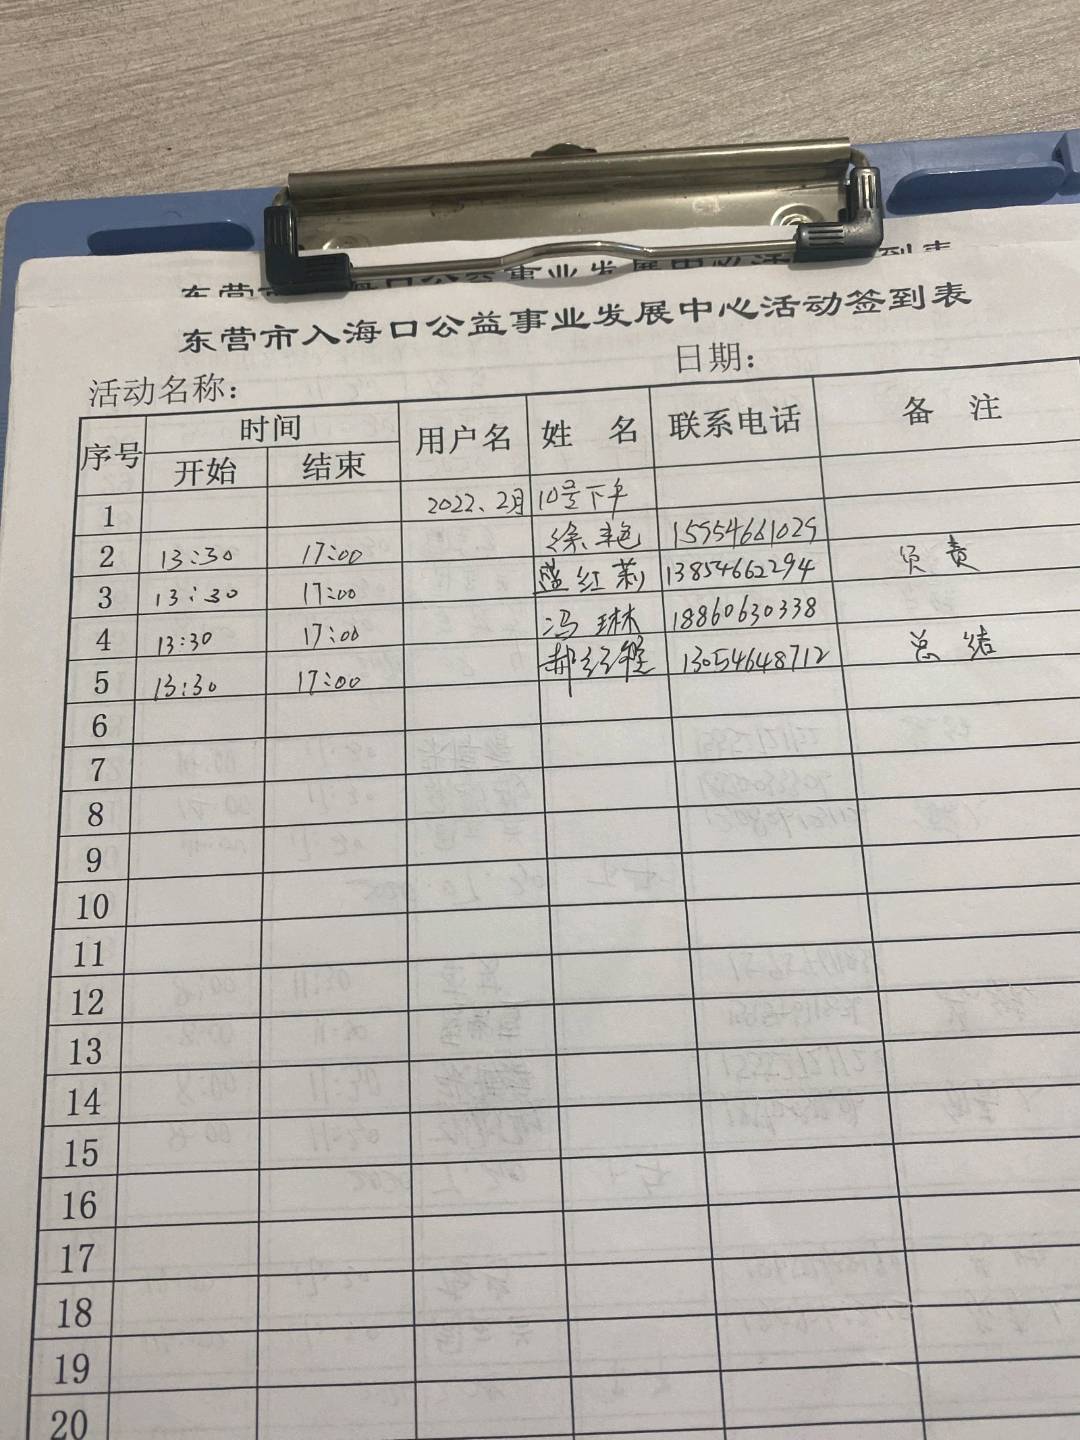 东营市入海口公益事业发展中心活动签到表
活动名称： 日期：
序号 时间 用户名 姓 名 联系电话 备 注
开始 结束
1 2022、2月 10号下午
2 13:30 17:00 徐艳 15954661029
3 13:30 17:00 盖红莉 13854662294 负责
4 13:30 17:00 冯琳 18860630338
5 13:30 17:00 郝 13054648712 总结
6
7
8
9
10
11
12
13
14
15
16
17
18
19
20